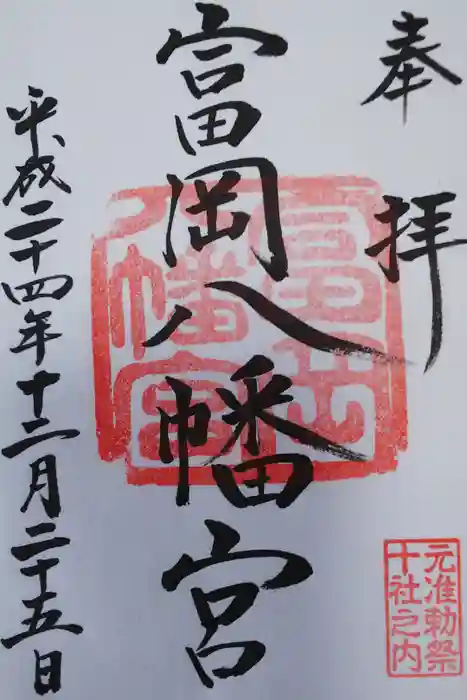 奉拝
富岡八幡宮
平成二十四年十二月二十五日
富岡
八幡宮
元准勅祭
十社之内